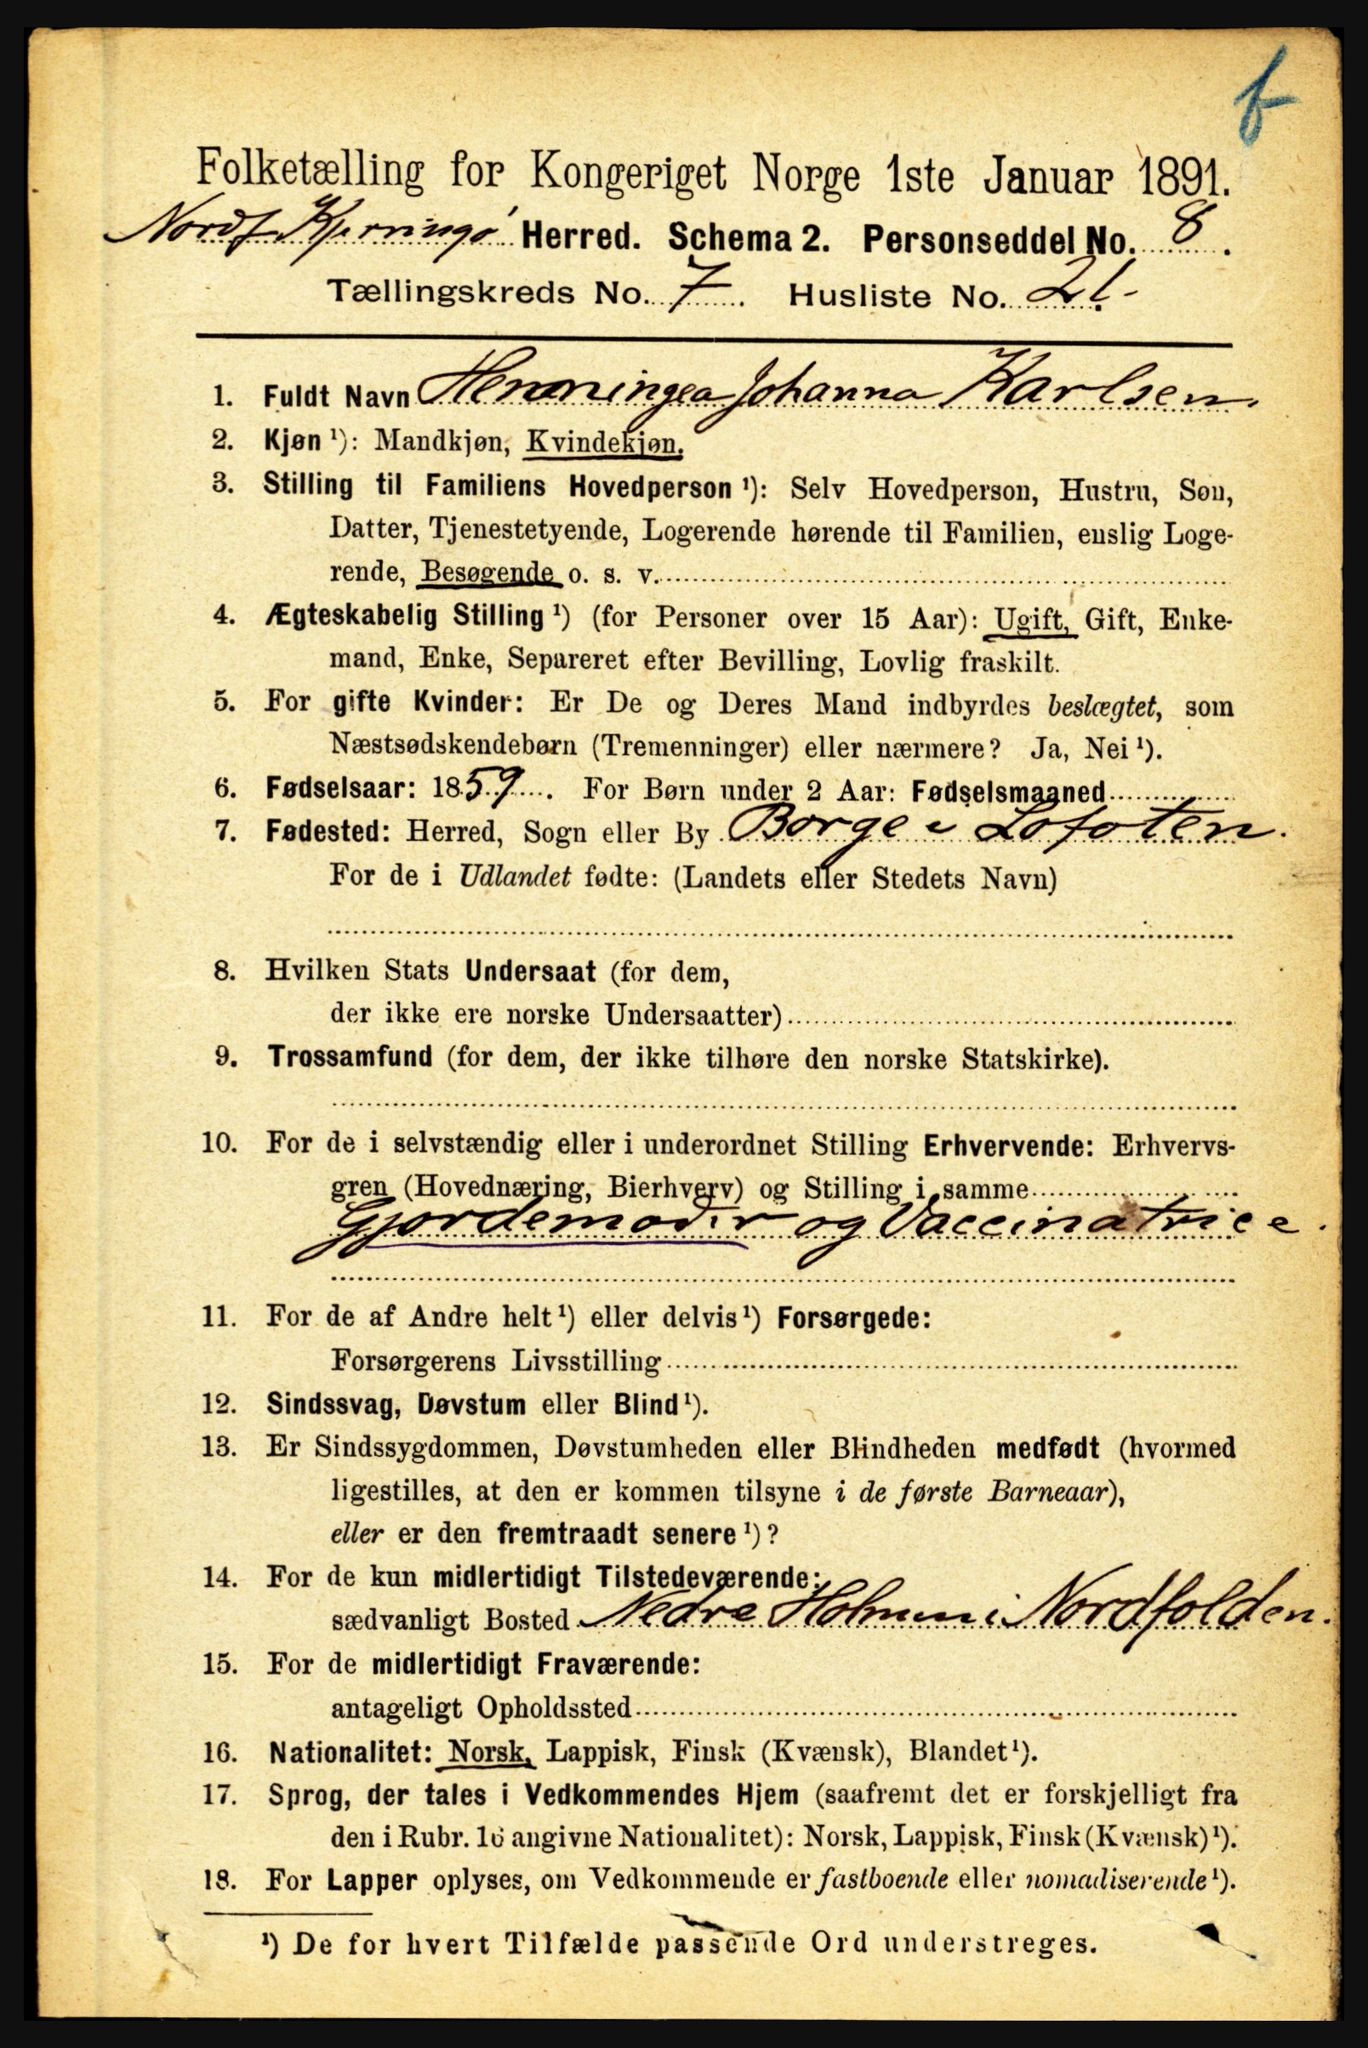 f
Folketælling for Kongeriget Norge 1ste Januar 1891.
Nordf. Kjerringø Herred. Schema 2. Personseddel No. 8.
Tællingskreds No. 7. Husliste No. 21.
1. Fuldt Navn Henningea Johanna Karlsen.
2. Kjøn ¹): Mandkjøn, Kvindekjøn.
3. Stilling til Familiens Hovedperson ¹): Selv Hovedperson, Hustru, Søn,
Datter, Tjenestetyende, Logerende hørende til Familien, enslig Loge-
rende, Besøgende o. s. v.
4. Ægteskabelig Stilling ¹) (for Personer over 15 Aar): Ugift, Gift, Enke-
mand, Enke, Separeret efter Bevilling, Lovlig fraskilt.
5. For gifte Kvinder: Er De og Deres Mand indbyrdes beslægtet, som
Næstsødskendebørn (Tremenninger) eller nærmere? Ja, Nei ¹).
6. Fødselsaar: 1859. For Børn under 2 Aar: Fødselsmaaned
7. Fødested: Herred, Sogn eller By Borge i Lofoten.
For de i Udlandet fødte: (Landets eller Stedets Navn)
8. Hvilken Stats Undersaat (for dem,
der ikke ere norske Undersaatter)
9. Trossamfund (for dem, der ikke tilhøre den norske Statskirke).
10. For de i selvstændig eller i underordnet Stilling Erhvervende: Erhvervs-
gren (Hovednæring, Bierhverv) og Stilling i samme
Gjordemoder og Vaccinatrice.
11. For de af Andre helt ¹) eller delvis ¹) Forsørgede:
Forsørgerens Livsstilling
12. Sindssvag, Døvstum eller Blind ¹).
13. Er Sindssygdommen, Døvstumheden eller Blindheden medfødt (hvormed
ligestilles, at den er kommen tilsyne i de første Barneaar),
eller er den fremtraadt senere ¹)?
14. For de kun midlertidigt Tilstedeværende:
sædvanligt Bosted Nedre Holmen i Nordfolden.
15. For de midlertidigt Fraværende:
antageligt Opholdssted
16. Nationalitet: Norsk, Lappisk, Finsk (Kvænsk), Blandet ¹).
17. Sprog, der tales i Vedkommendes Hjem (saafremt det er forskjelligt fra
den i Rubr. 16 angivne Nationalitet): Norsk, Lappisk, Finsk (Kvænsk) ¹).
18. For Lapper oplyses, om Vedkommende er fastboende eller nomadiserende ¹).
¹) De for hvert Tilfælde passende Ord understreges.